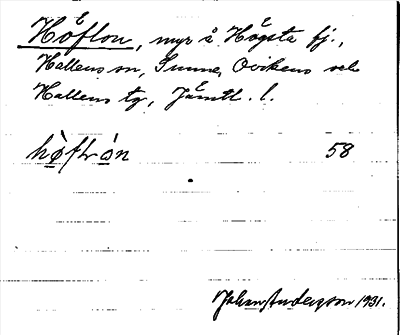 Höflon, myr å Högsta fj.,
Hallens sn, Sunne, Ovikens och
Hallens tg, Jämtl. l.
hȯftrȯn 58
Johan Anderzson 1931.